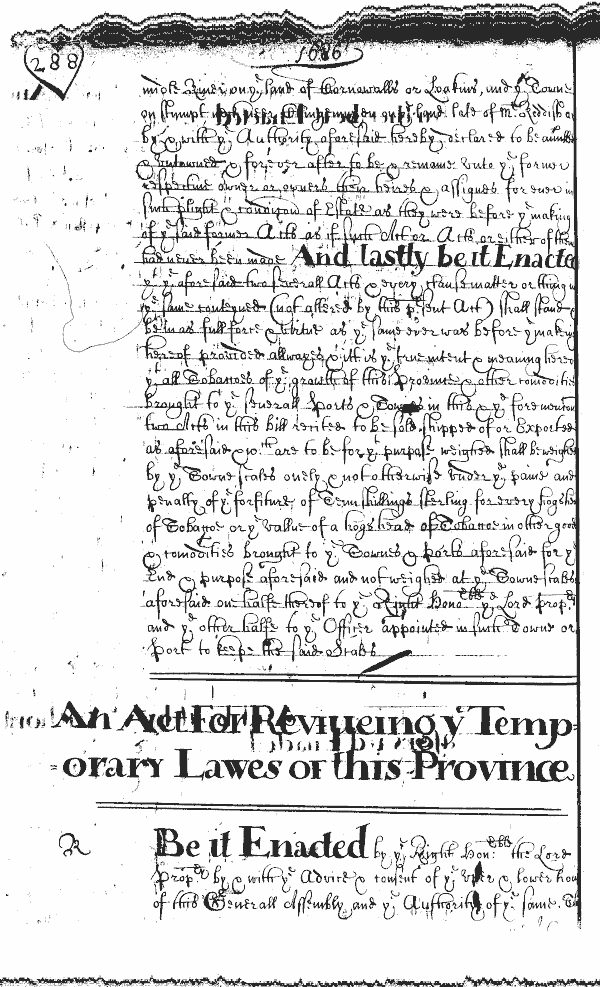 288
1686
more River, on yͤ land of Cornewalls or Eoakins, and yͤ Towne
on yͤ land late of Mͬ
by & with yͤ Authority aforesaid hereby declared to be
& untowned & forever after to be & remaine unto yͤ former
respective owner or owners their heires & assignes for ever in
such plight & condicon of Estate as they were before yͤ making
of yͤ said former Acts as if such Act or Acts or either of them
had never been made And lastly be it Enacted
yͭ yͤ aforesaid two severall Acts & every clause matter or thing in
yͤ same conteyned (not altered by this pͬsent Act) shall stand &
be in as full force & virtue as yͤ same ever was before yͤ making
hereof provided allwayes & itt is yͤ true intent & meaning hereof
yͭ all Tobaccoes of yͤ growth of this Province & other comodities
brought to yͤ severall Ports & Townes in this & yͤ forementioned
two Acts in this bill recited to be sold shipped of or Exported
as aforesaid & wͨͪ are to be for yͭ purpose weighed shall be weighed
by yͤ Towne scales onely & not otherwise under yͤ paine and
penalty of yͤ forfiture of Tenn shillings sterling for every hogshead
of Tobaccoe or yͤ vallue of a hogshead of Tobaccoe in other goods
& comodities brought to yͤ Townes & Ports aforesaid for yͤ
End & purpose aforesaid and not weighed at yͤ Towne scales
aforesaid one halfe thereof to yͤ Right Honoͬͣͤ yͤ Lord Propͬʸ
and yͤ other halfe to yͤ Officer appointed in such Towne or
Port to keepe the said Scales
An Act For Reviveing yͤ Temp=
=orary Lawes of this Province
R Be it Enacted by yͤ Right Honͬ the Lord
Propͬʸ by & with yͤ Advice & consent of yͤ upper & lower house
of this Generall Assembly and yͤ Authority of yͤ same